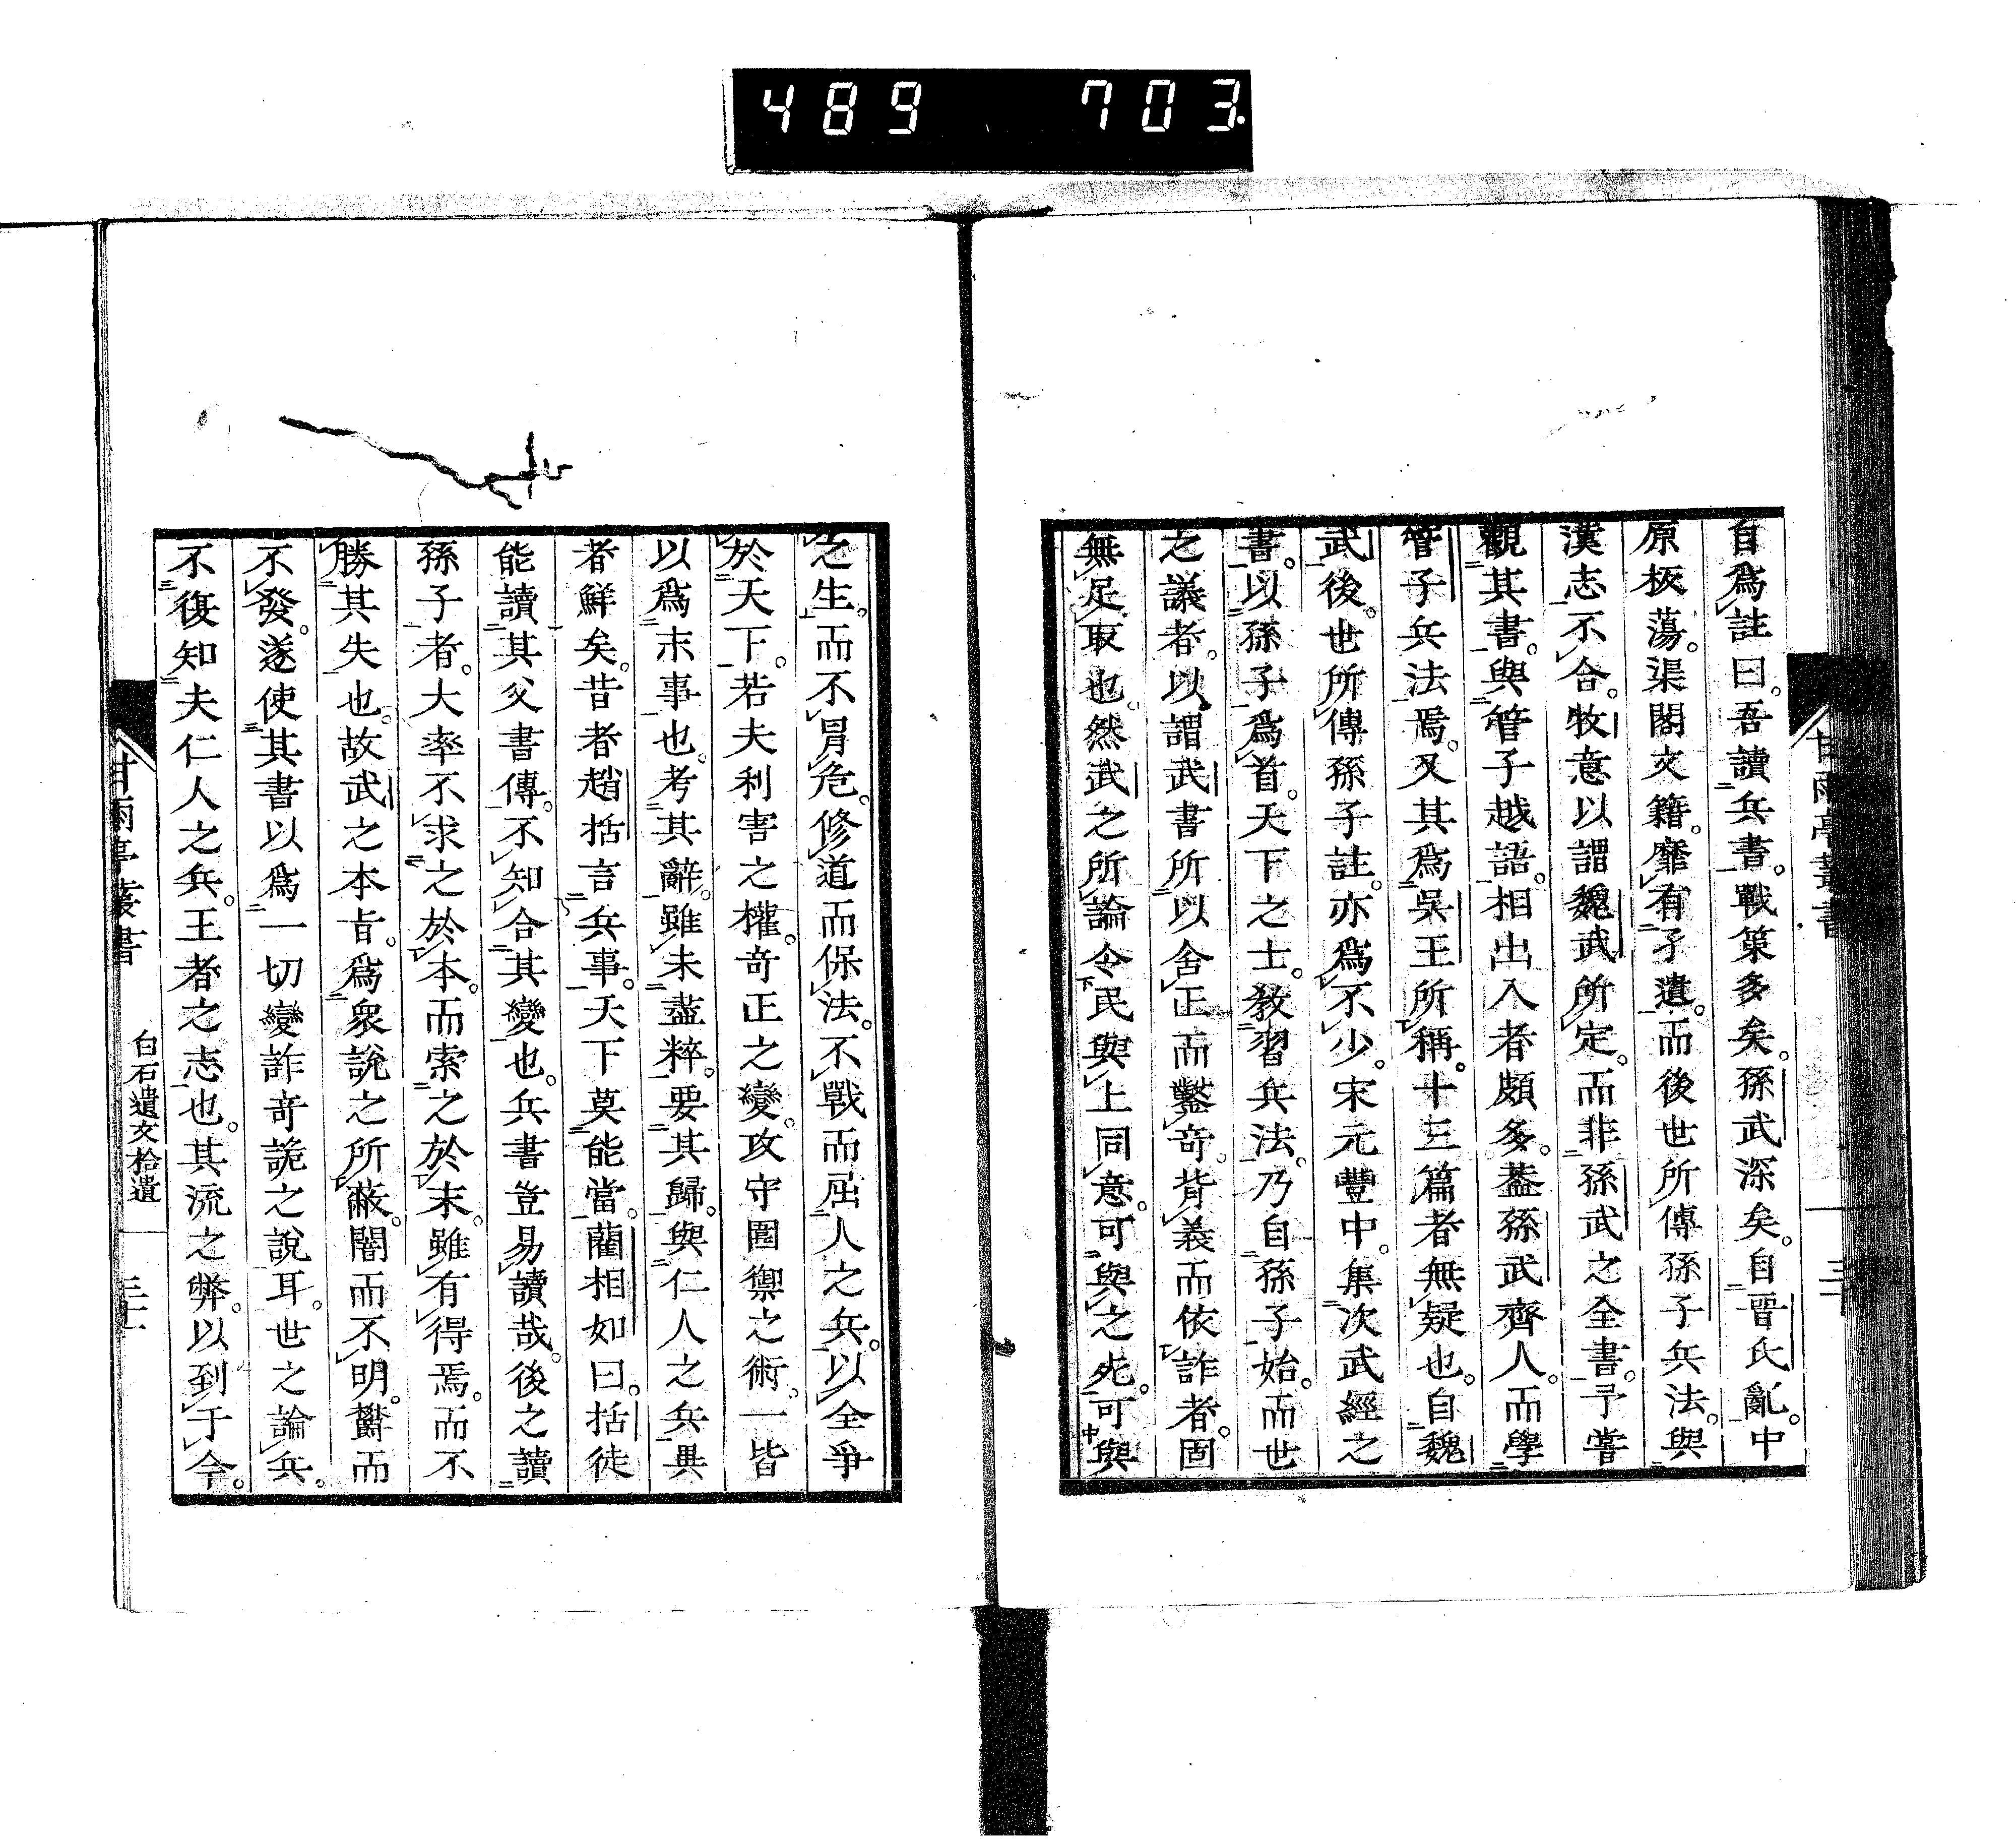 489 703
自爲註曰。吾讀兵書。戰策多矣。孫武深矣。自晉氏亂。中
原板蕩。渠閣文籍。靡有孑遺。而後世所傳孫子兵法。與
漢志不合。牧意以謂魏武所定。而非孫武之全書。予嘗
觀其書。與管子越語。相出入者頗多。蓋孫武齊人。而學
管子兵法焉。又其爲吳王所稱。十三篇者無疑也。自魏
武後。世所傳孫子註。亦爲不少。宋元豐中。集次武經之
書。以孫子爲首。天下之士。教習兵法。乃自孫子始。而世
之議者。以謂武書所以舍正而鑿奇。背義而依詐者。固
無足取也。然武之所論令民與上同意。可與之死。可與
之生。而不畏危。修道而保法。不戰而屈人之兵。以全爭
於天下。若夫利害之權。奇正之變。攻守圍禦之術。一皆
以爲末事也。考其辭。雖未盡粹。要其歸。與仁人之兵異
者鮮矣。昔者趙括言兵事。天下莫能當。藺相如曰。括徒
能讀其父書傳。不知合其變也。兵書豈易讀哉。後之讀
孫子者。大率不求之於本。而索之於末。雖有得焉。而不
勝其失也。故武之本旨。爲衆說之所蔽。闇而不明。鬱而
不發。遂使其書以爲一切變詐奇詭之說耳。世之論兵。
不復知夫仁人之兵。王者之志也。其流之弊。以到于今。
甘雨亭叢書 白石遺文拾遺
甘雨亭叢書